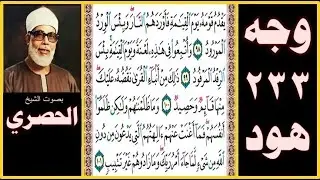 وجه
٢٣٣
هود
يَقْدُمُ قَوْمَهُۥ يَوْمَ ٱلْقِيَٰمَةِ فَأَوْرَدَهُمُ ٱلنَّارَ وَبِئْسَ ٱلْوِرْدُ
ٱلْمَوْرُودُ ٩٨ وَأُتْبِعُوا۟ فِى هَٰذِهِۦ لَعْنَةً وَيَوْمَ ٱلْقِيَٰمَةِ بِئْسَ
ٱلرِّفْدُ ٱلْمَرْفُودُ ٩٩ ذَٰلِكَ مِنْ أَنۢبَآءِ ٱلْقُرَىٰ نَقُصُّهُۥ عَلَيْكَ
مِنْهَا قَآئِمٌ وَحَصِيدٌ ١٠٠ وَمَا ظَلَمْنَٰهُمْ وَلَٰكِن ظَلَمُوٓا۟
أَنفُسَهُمْ فَمَآ أَغْنَتْ عَنْهُمْ ءَالِهَتُهُمُ ٱلَّتِى يَدْعُونَ مِن دُونِ
ٱللَّهِ مِن شَىْءٍ لَّمَّا جَآءَ أَمْرُ رَبِّكَ وَمَا زَادُوهُمْ غَيْرَ تَتْبِيبٍ ١٠١
بصوت الشيخ
الحصري